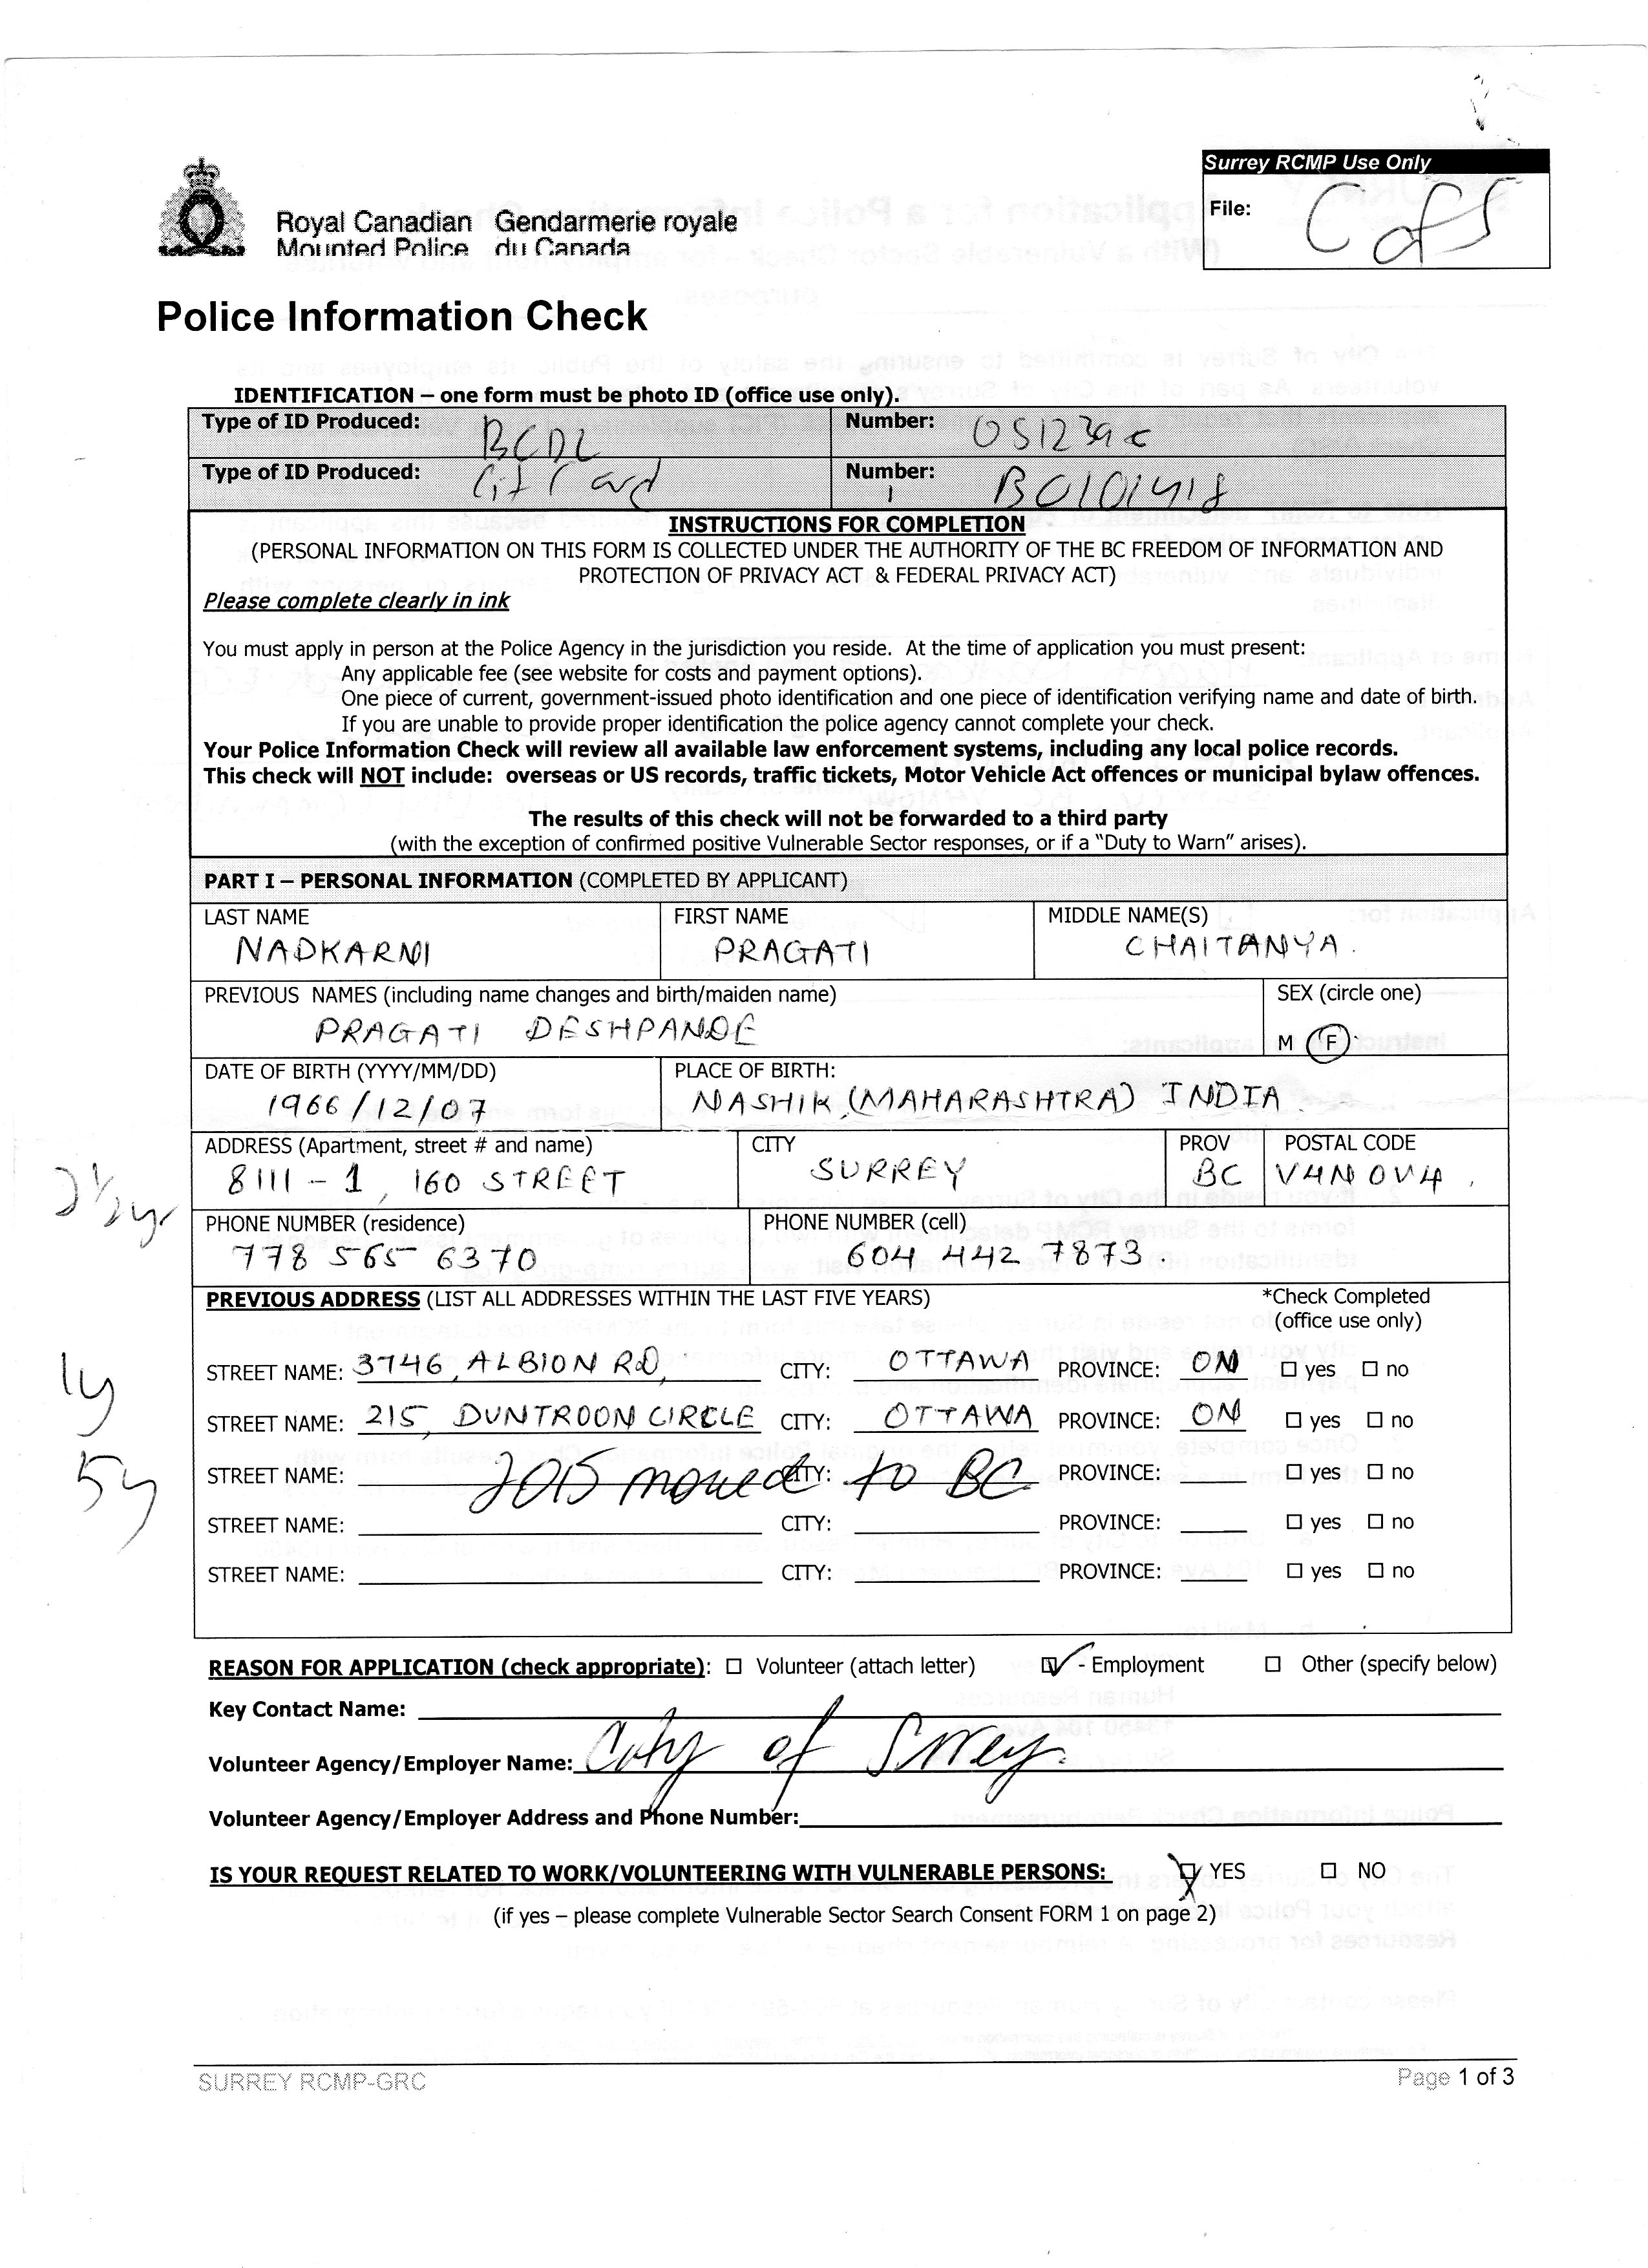 Surrey RCMP Use Only
File: C of S
Royal Canadian Gendarmerie royale
Mounted Police du Canada
Police Information Check
IDENTIFICATION – one form must be photo ID (office use only).
Type of ID Produced: BCDL Number:
Type of ID Produced: Cit Card Number:
INSTRUCTIONS FOR COMPLETION
(PERSONAL INFORMATION ON THIS FORM IS COLLECTED UNDER THE AUTHORITY OF THE BC FREEDOM OF INFORMATION AND
PROTECTION OF PRIVACY ACT & FEDERAL PRIVACY ACT)
Please complete clearly in ink
You must apply in person at the Police Agency in the jurisdiction you reside. At the time of application you must present:
Any applicable fee (see website for costs and payment options).
One piece of current, government-issued photo identification and one piece of identification verifying name and date of birth.
If you are unable to provide proper identification the police agency cannot complete your check.
Your Police Information Check will review all available law enforcement systems, including any local police records.
This check will NOT include: overseas or US records, traffic tickets, Motor Vehicle Act offences or municipal bylaw offences.
The results of this check will not be forwarded to a third party
(with the exception of confirmed positive Vulnerable Sector responses, or if a “Duty to Warn” arises).
PART I – PERSONAL INFORMATION (COMPLETED BY APPLICANT)
LAST NAME FIRST NAME MIDDLE NAME(S)
NADKARNI PRAGATI CHAITANYA.
PREVIOUS NAMES (including name changes and birth/maiden name) SEX (circle one)
PRAGATI DESHPANDE M F
DATE OF BIRTH (YYYY/MM/DD) PLACE OF BIRTH:
1966/12/07 NASHIK (MAHARASHTRA) INDIA
ADDRESS (Apartment, street # and name) CITY PROV POSTAL CODE
8111 - 1, 160 STREET SURREY BC V4N 0V4
2 1/2 yr
PHONE NUMBER (residence) PHONE NUMBER (cell)
778 565 6370 604 442 7873.
PREVIOUS ADDRESS (LIST ALL ADDRESSES WITHIN THE LAST FIVE YEARS) *Check Completed
(office use only)
1y STREET NAME: 3746, ALBION RD, CITY: OTTAWA PROVINCE: ON yes no
STREET NAME: 215, DUNTROON CIRCLE CITY: OTTAWA PROVINCE: ON yes no
5y STREET NAME: 2015 moved to BC CITY: PROVINCE: yes no
STREET NAME: CITY: PROVINCE: yes no
STREET NAME: CITY: PROVINCE: yes no
REASON FOR APPLICATION (check appropriate): Volunteer (attach letter) - Employment Other (specify below)
Key Contact Name:
Volunteer Agency/Employer Name: City of Surrey
Volunteer Agency/Employer Address and Phone Number:
IS YOUR REQUEST RELATED TO WORK/VOLUNTEERING WITH VULNERABLE PERSONS: YES NO
(if yes – please complete Vulnerable Sector Search Consent FORM 1 on page 2)
SURREY RCMP-GRC Page 1 of 3